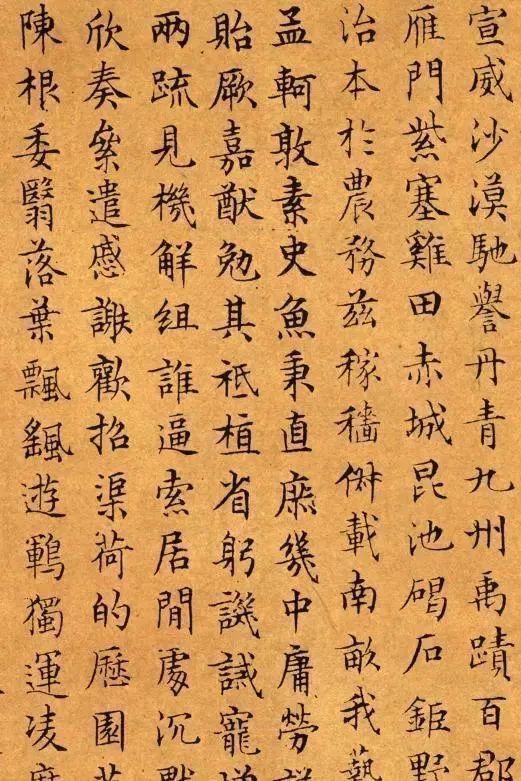 宣威沙漠馳譽丹青九州禹蹟百郡
雁門紫塞雞田赤城昆池碣石鉅野
治本於農務茲稼穡俶載南畝我藝
孟軻敦素史魚秉直庶幾中庸勞謙
貽厥嘉猷勉其祗植省躬譏誡寵增
兩疏見機解組誰逼索居閒處沉默
欣奏累遣慼謝歡招渠荷的歷園莽
陳根委翳落葉飄颻遊鵾獨運凌摩